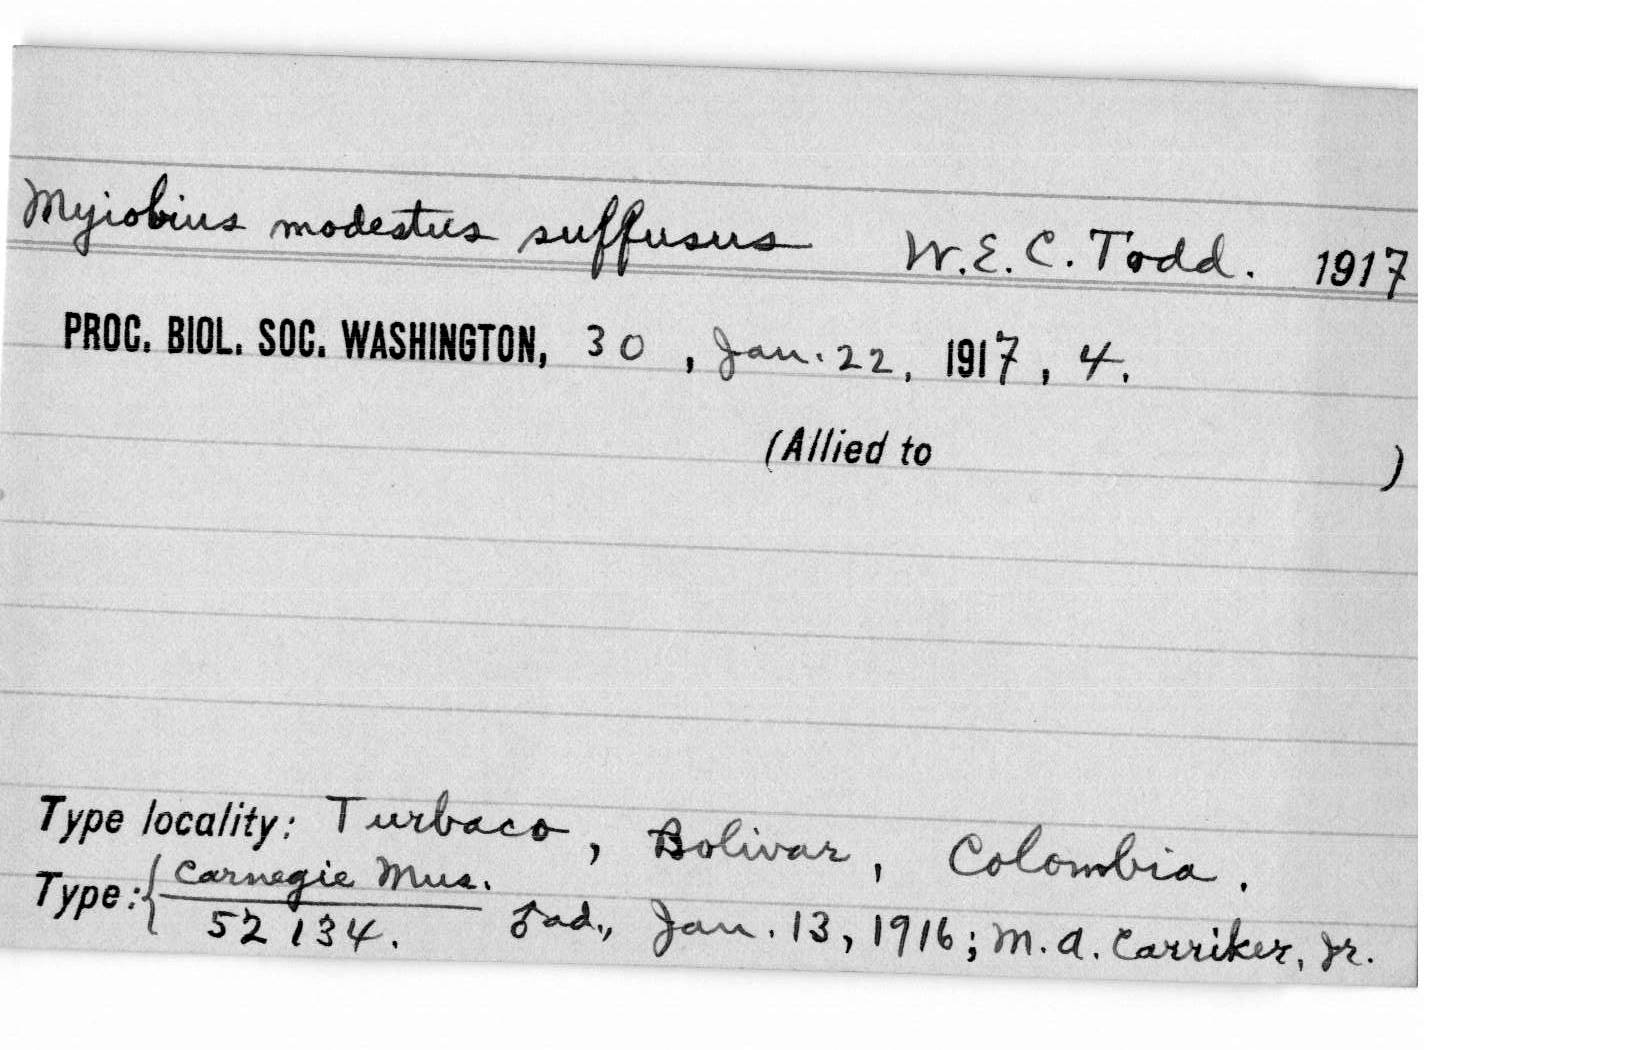 Myiobius modestus suffusus W.E.C. Todd. 1917
PROC. BIOL. SOC. WASHINGTON, 30, Jan. 22, 1917, 4.
(Allied to )
Type locality: Turbaco, Bolivar, Colombia.
Type: { Carnegie Mus.
52134. ♂ad., Jan. 13, 1916; M.A. Carriker, Jr.